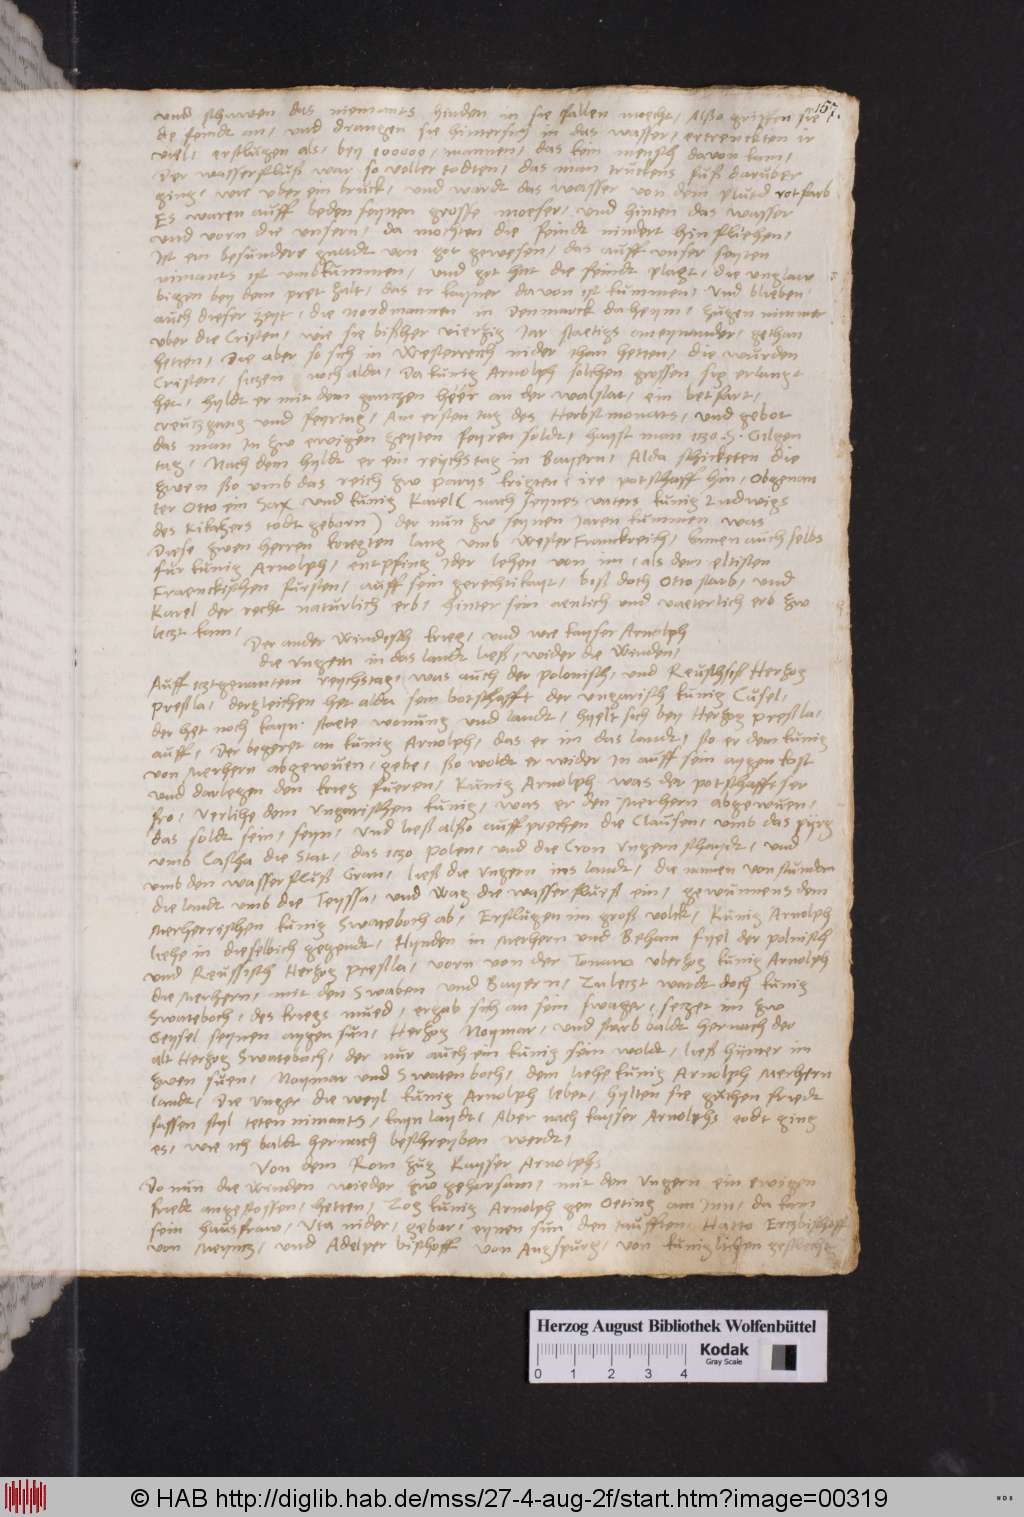 157.
und schuren das niemants hinden in sie fallen moecht, Alßo griffen sie
die feindt an, und drangen sie hintersich in das wasser, ertrenckten ir
viel, erslugen als, bey 100000, mannen, das kein mensch davon kam,
Der wasserfluß war so voller todten, das man truckens fuß daruber
ging, wie uber ein bruck, und wardt das wasser von dem plutd rotfarb
Es waren auff beden seyten grosse moeser, und hinten das wasser
und vorn die unsern, da mochten die feindt nindert hin fliehen,
Ist ein besundere gnadt von got gewesen, das auff unser seyten
nimants ist umbkummen, und got hat die feindt plagt, die unglaw
bigen bey dem pret halt, das ir kayner davon ist kummen, Und blieben
auch dieser zeyt, die nordmannen in Denmarck daheym, zugen nimmer
uber die Cristen, wie sie bißher vierzig Jar staetigs aneynander, gethan
hetten, Die aber so sich in Westerreich nider than hetten, die wurden
Cristen, sitzen noch alda, Da kunig Arnolph solchen grossen sig erlangt
het, hyldt er mit dem gantzen heer an der walstat, ein betfart,
creutzgang und feyrtag, Am ersten tag des Herbstmonats, und gebot
das man In zw ewigen zeyten feyren soldt, hayst man itzo S. Gilgen
tag, Nach dem hyldt er ein reychstag in Bayern, Alda schicketen die
zwen ßo umb das reich zw Parys krigten, ire potschafft hin, Obgenan
ter Otto ein Sax und kunig Karel (nach seynes vaters kunig Ludwigs
des Kikatzers todt geborn) der nun zw seynen Jaren kummen was
Diese zwen herren kriegten lang umb WesterFranckreich, kamen auch selbs
fur kunig Arnolph, entpfing Ider lehen von im, als dem eltisten
Fraenckischen fursten, auff sein gerechtikayt, biß doch Otto starb, und
Karel der recht naturlich erb, hinter sein aenlich und vaeterlich erb zw
letzt kam,
Der ander Windisch krieg, und wie kayser Arnolph
die Ungern in das landt ließ, wider die Winden,
Auff itztgenantem reychstag, was auch der Polonisch, und Reussisch Hertzog
Preßla, dergleichen het alda sein botschafft der ungarisch kunig Cusel,
der het noch kayn staete wonung und landt, hyelt sich bey Hertzog Preßla,
auff, Der begeret an kunig Arnolph, das er in das landt, ßo er dem kunig
von Merhern abgewuen, gebe, ßo woldt er wider In auff sein aygen kost
und darlegen den krieg fueren, Kunig Arnolph was der potschafft ser
fro, Verlihe dem Ungarischen kunig, was er den Merhern abgewuen,
das soldt sein, seyn, Und ließ alßo auffprechen die Clausen, umb das pyrg
umb Cascha die Stat, das itzo Polen, und die Cron Ungern schaydt, und
umb den wasserfluß Gran, ließ die Ungern ins landt, die namen von stundan
die landt umb die Teyssa, und Wag die wasserfluß ein, gewunnens dem
Merherischen kunig Swateboch ab, Erslugen im groß volck, Kunig Arnolph
liehe in dieselbich gegendt, Hynden in Merhern und Beham fyel der polnisch
und Reussisch Hertzog Preßla, vorn von der Tonaw uberzog kunig Arnolph
die Merhern, mit den Swaben und Bayern, Zuletzt wardt doch kunig
Swateboch, des kriegs mued, ergab sich an sein swager, setzet im zw
Geysel seynen aygen sun, Hertzog Moymar, und starb baldt hernach der
alt Hertzog Swateboch, der nur auch ein kunig sein woldt, ließ hynter im
zwen suen, Moymar und Swatenboch, dem liehe kunig Arnolph Merhern
landt, Die Unger die weyl kunig Arnolph lebet, hylten sie guthen friedt
sassen styl teten nimants, kayn laydt, Aber nach kayser Arnolphs todt ging
es, wie ich baldt hernach beschreyben werdt,
Von dem Rom zug Kaysser Arnolphs
Do nun die Winden wieder zw gehorsam, mit den Ungern ein ewigen
friedt angestossen, hetten, Zog kunig Arnolph gen Oeting am Inn, da kam
sein hausfraw, Uta nider, gebar, eynen sun, den taufften Hatto Ertzbischoff
von Meyntz, und Adelper bischoff von Augspurg, von kuniglichen geslecht
Herzog August Bibliothek Wolfenbüttel
Kodak
Gray Scale
0 1 2 3 4
© HAB http://diglib.hab.de/mss/27-4-aug-2f/start.htm?image=00319